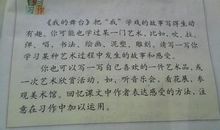 习作
《我的舞台》把“我”学戏的故事写得生动
有趣。你可能也学过某一门艺术，比如，吹、拉、
弹、唱、书法、绘画、泥塑、雕刻，请写一写你
学习某种艺术过程中发生的故事和感受。
你也可以写一写自己喜欢的一件艺术品，或
一次艺术欣赏活动，如，听音乐会、看花展、参
观美术馆。回忆课文中作者表达感受的方法，注
意在习作中加以运用。